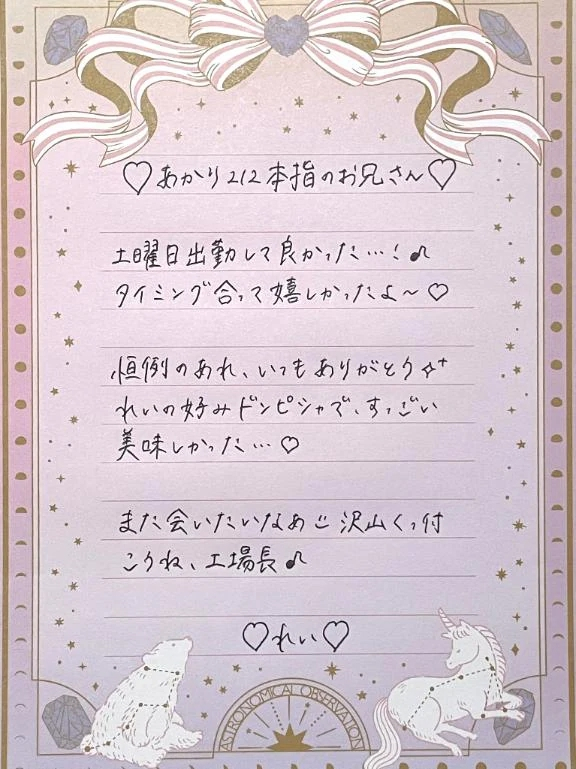 ♡あかり212本指のお兄さん♡
土曜日出勤して良かった…!♪
タイミング合って嬉しかったよ～♡
恒例のあれ、いつもありがとう✧⁺
れいの好みドンピシャで、すっごい
美味しかった…♡
また会いたいなあ 沢山くっ付
こうね、工場長♪
♡れい♡
ASTRONOMICAL OBSERVATION